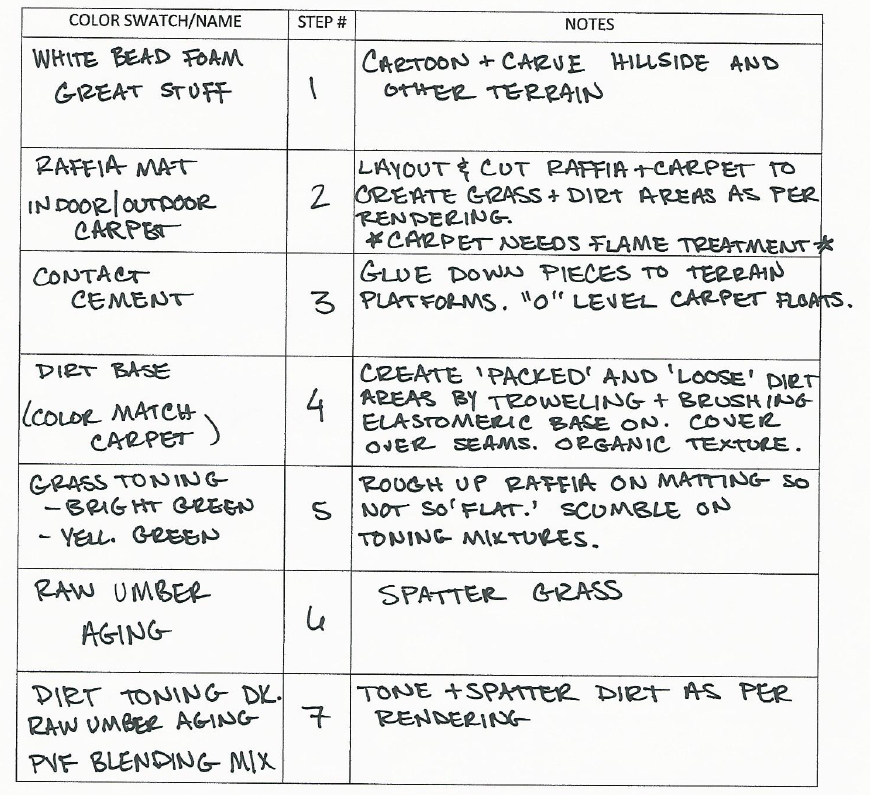 COLOR SWATCH/NAME STEP # NOTES
WHITE BEAD FOAM
GREAT STUFF
1
CARTOON + CARVE HILLSIDE AND
OTHER TERRAIN
RAFFIA MAT
INDOOR/OUTDOOR
CARPET
2
LAYOUT & CUT RAFFIA + CARPET TO
CREATE GRASS + DIRT AREAS AS PER
RENDERING.
*CARPET NEEDS FLAME TREATMENT*
CONTACT
CEMENT
3
GLUE DOWN PIECES TO TERRAIN
PLATFORMS. "0" LEVEL CARPET FLOATS.
DIRT BASE
(COLOR MATCH
CARPET)
4
CREATE 'PACKED' AND 'LOOSE' DIRT
AREAS BY TROWELING + BRUSHING
ELASTOMERIC BASE ON. COVER
OVER SEAMS. ORGANIC TEXTURE.
GRASS TONING
- BRIGHT GREEN
- YELL. GREEN
5
ROUGH UP RAFFIA ON MATTING SO
NOT SO 'FLAT.' SCUMBLE ON
TONING MIXTURES.
RAW UMBER
AGING
6
SPATTER GRASS
DIRT TONING DK.
RAW UMBER AGING
PVF BLENDING MIX
7
TONE + SPATTER DIRT AS PER
RENDERING